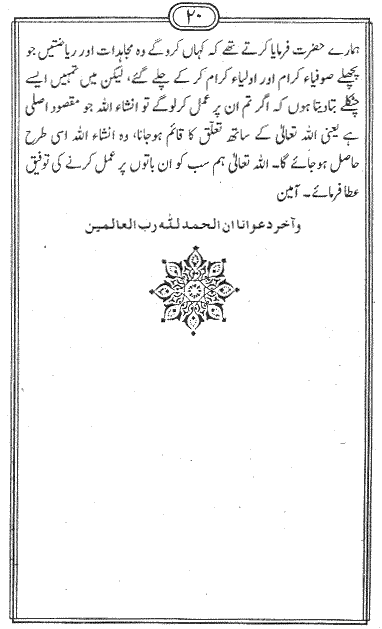 ۲۰
ہمارے حضرت فرمایا کرتے تھے کہ کہاں کرو گے وہ مجاہدات اور ریاضتیں جو
پچھلے صوفیاء کرام اور اولیاء کرام کر کے چلے گئے، لیکن میں تمہیں ایسے
چٹکلے بتا دیتا ہوں کہ اگر تم ان پر عمل کر لو گے تو انشاء اللہ جو مقصود اصلی
ہے یعنی اللہ تعالیٰ کے ساتھ تعلّق کا قائم ہو جانا، وہ انشاء اللہ اسی طرح
حاصل ہو جائے گا۔ اللہ تعالیٰ ہم سب کو ان باتوں پر عمل کرنے کی توفیق
عطا فرمائے۔ آمین
وآخر دعوانا ان الحمد للہ رب العالمین